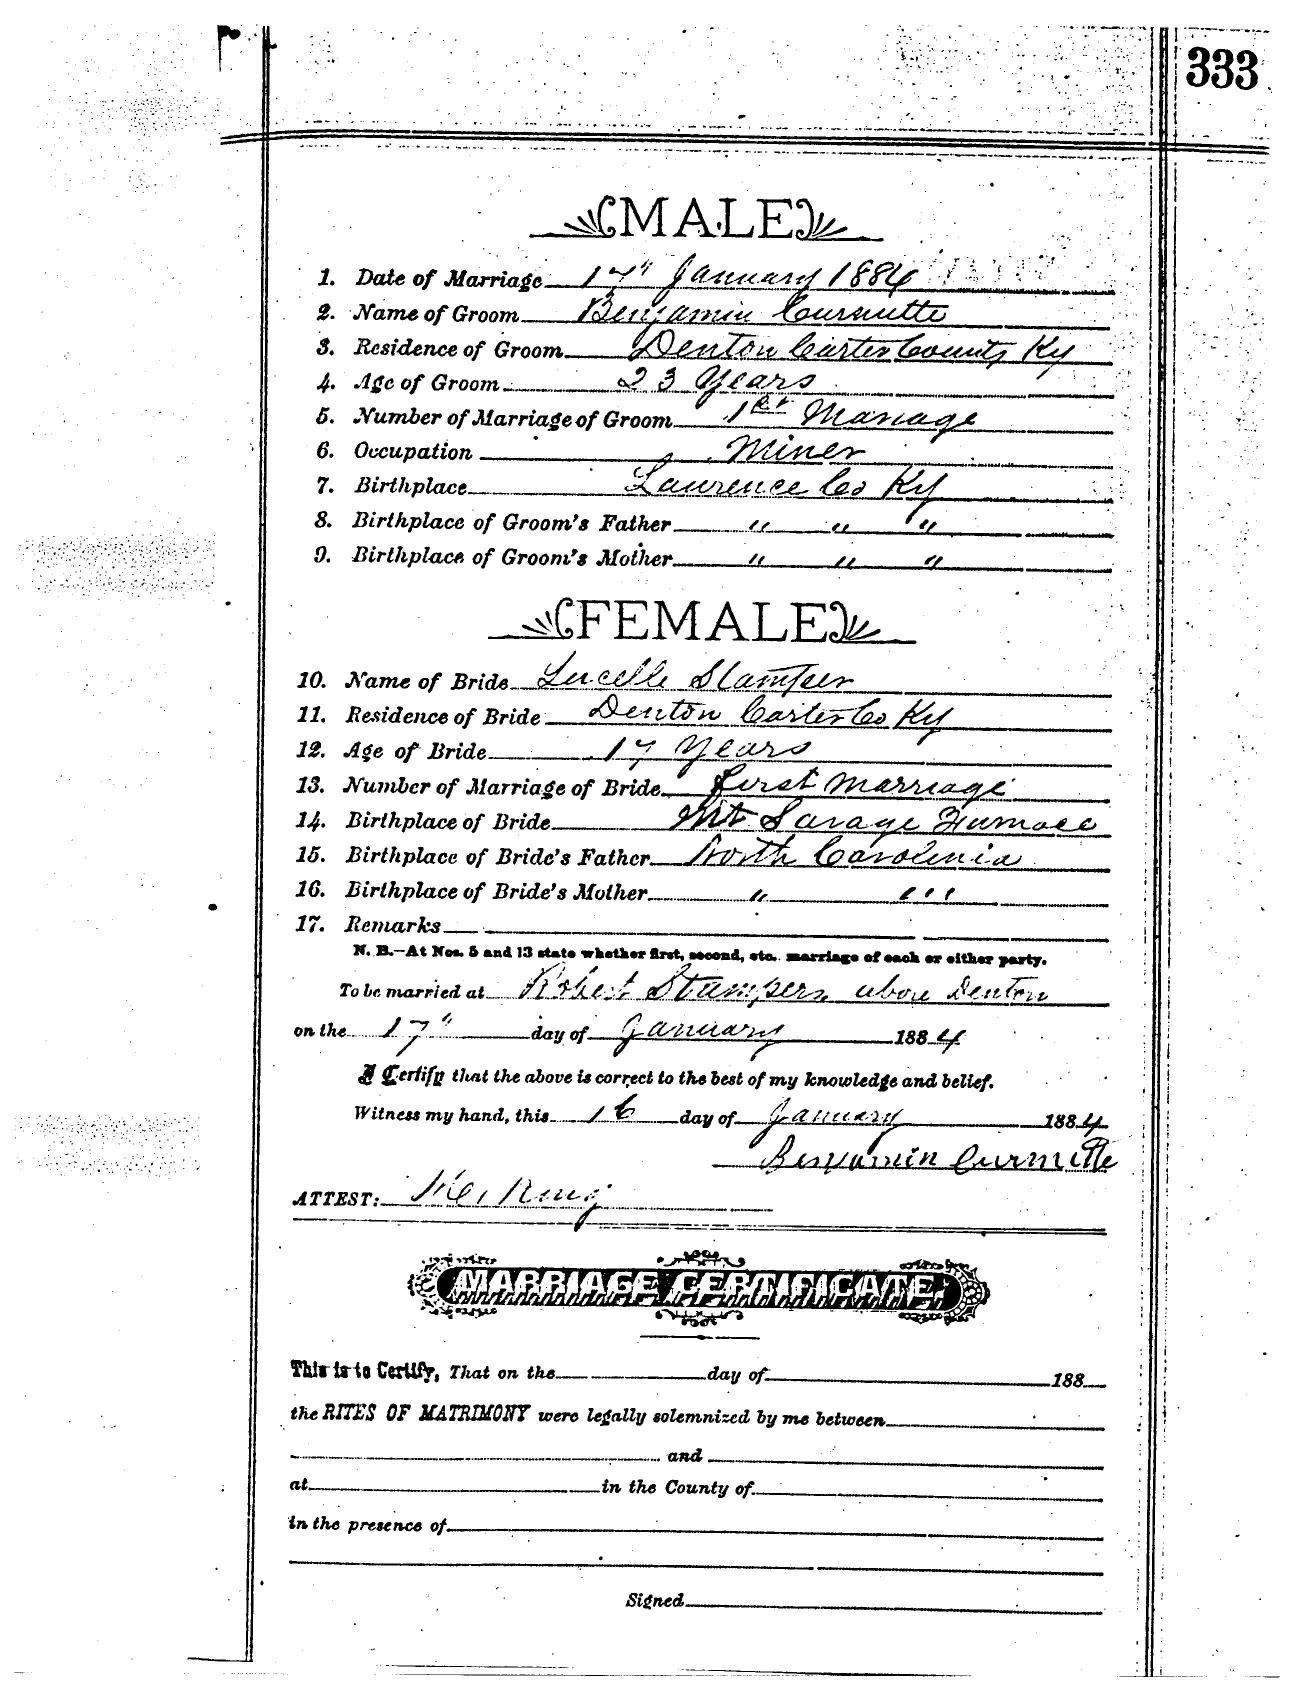 333
MALE
1. Date of Marriage 17" January 1884
2. Name of Groom Benjamin Curnutte
3. Residence of Groom Denton Carter County Ky
4. Age of Groom 23 Years
5. Number of Marriage of Groom 1st Marriage
6. Occupation Miner
7. Birthplace Lawrence Co Ky
8. Birthplace of Groom's Father " " "
9. Birthplace of Groom's Mother " " "
FEMALE
10. Name of Bride Lucelle Stamper
11. Residence of Bride Denton Carter Co Ky
12. Age of Bride 17 Years
13. Number of Marriage of Bride first Marriage
14. Birthplace of Bride Mt Savage Furnace
15. Birthplace of Bride's Father North Carolinia
16. Birthplace of Bride's Mother " " "
17. Remarks
N. B.—At Nos. 5 and 13 state whether first, second, etc. marriage of each or either party.
To be married at Robert Stampers above Denton
on the 17" day of January 1884
I Certify that the above is correct to the best of my knowledge and belief.
Witness my hand, this 16 day of January 1884
Benjamin Curnutte
ATTEST:
MARRIAGE CERTIFICATE.
This is to Certify, That on the day of 188
the RITES OF MATRIMONY were legally solemnized by me between
and
at in the County of
in the presence of
Signed